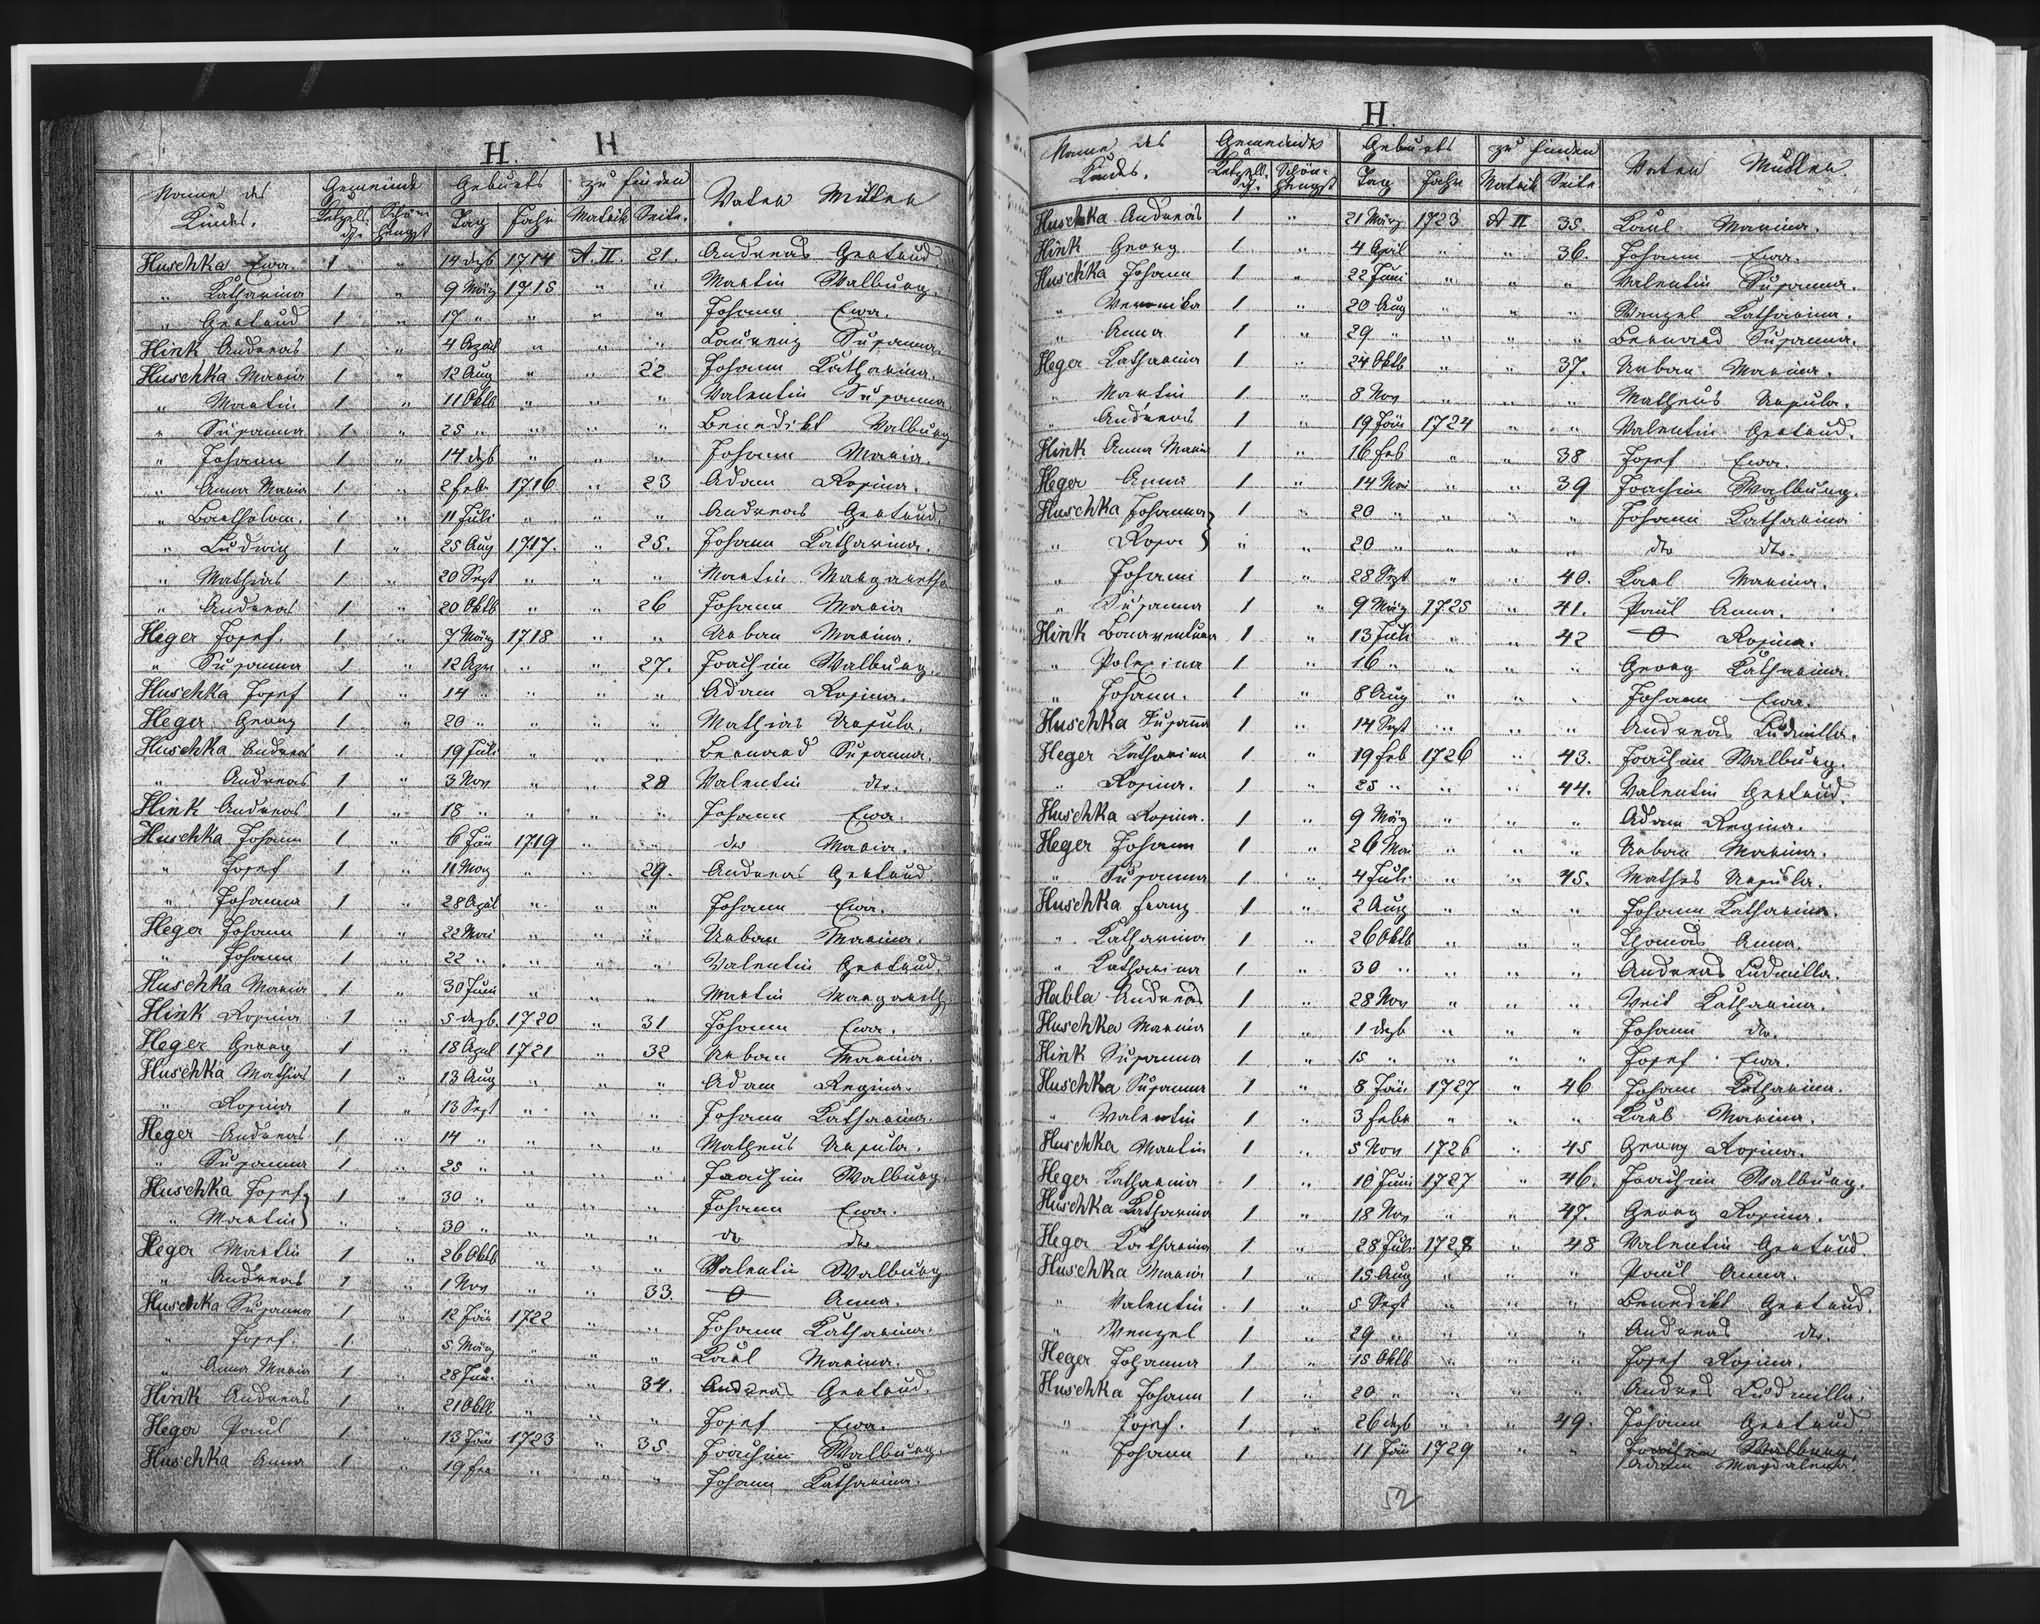 H. H
Name des Kindes. Gemeinde Geburts zu finden Vater Mutter
Ketzels. df. Schön hengst Tag Jahr Matrik Seite.
Huschka Ewa. 1 " 14 dezb 1714 A. II. 21. Andreas Gertrud.
" Katharina 1 " 9 März 1715 " " Martin Walburg.
" Gertrud 1 " 17 " " " " Johann Ewa.
Hink Andreas 1 " 4 April " " " Laurenz Susanna.
Huschka Maria 1 " 12 Aug " " 22 Johann Katharina.
" Martin 1 " 11 Oktb " " " Valentin Susanna
" Susanna 1 " 25 " " " " Benedikt Walburg
" Johann 1 " 14 dezb " " " Johann Maria.
" Anna Maria 1 " 2 febr 1716 " 23 Adam Rosina.
" Bartholom. 1 " 11 Juli " " " Andreas Gertrud.
" Ludwig 1 " 25 Aug 1717. " 25. Johann Katharina.
" Mathias 1 " 20 Sept " " " Martin Margaretha
" Andreas 1 " 20 Oktb " " 26 Johann Maria
Heger Josef. 1 " 7 März 1718 " " Urban Marina.
" Susanna 1 " 12 Apr " " 27. Joachim Walburg.
Huschka Josef 1 " 14 " " " " Adam Rosina.
Heger Georg 1 " 20 " " " " Mathias Ursula.
Huschka Andreas 1 " 19 Juli " " " Bernard Susanna.
" Andreas 1 " 3 Nov " " 28 Valentin dto.
Hink Andreas 1 " 18 " " " " Johann Ewa.
Huschka Johann 1 " 6 Jän 1719 " " dto Maria.
" Josef 1 " 11 Marz " " 29. Andreas Gertrud.
" Johanna 1 " 28 April " " " Johann Ewa.
Heger Johann 1 " 22 Mai " " " Urban Marina.
" Johann 1 " 22 " " " " Valentin Gertrud.
Huschka Maria 1 " 30 Juni " " " Martin Margareth
Hink Rosina 1 " 5 dezb. 1720 " 31 Johann Ewa.
Heger Georg 1 " 18 April 1721 " 32 Urban Marina.
Huschka Mathias 1 " 13 Aug " " " Adam Regina.
" Rosina 1 " 13 Sept " " " Johann Katharina.
Heger Andreas 1 " 14 " " " " Matheus Ursula.
" Susanna 1 " 25 " " " " Joachim Walburg.
Huschka Josef } 1 " 30 " " " " Johann Ewa.
" Martin } " " 30 " " " " do dto
Heger Martin 1 " 26 Oktb " " " Valentin Walburg
" Andreas 1 " 1 Nov " " 33. O Anna.
Huschka Susanna 1 " 12 Jän 1722 " " Johann Katharina.
" Josef. 1 " 5 März " " " Karl Marina.
" Anna Maria 1 " 28 Jun. " " 34. Andreas Gertrud.
Hink Andreas 1 " 21 Oktb " " " Josef Ewa.
Heger Paul 1 " 13 Jän 1723 " 35. Joachim Walburg.
Huschka Anna 1 " 19 feb " " " Johann Katharina.
H.
Name des Kindes. Gemeinde Geburts zu finden Vater Mutter
Ketzels. df. Schön- hengst Tag Jahr Matrik Seite
Huschka Andreas 1 " 21 März 1723 A II 35. Karl Marina.
Hink Georg 1 " 4 April " " 36. Johann Ewa.
Huschka Johann 1 " 22 Juni " " " Valentin Susanna.
" Veronika 1 " 20 Aug " " " Wenzel Katharina.
" Anna 1 " 29 " " " " Bernard Susanna.
Heger Katharina 1 " 24 Oktb " " 37. Urban Marina.
" Martin 1 " 8 Nov " " " Matheus Ursula.
" Andreas 1 " 19 Jän 1724 " " Valentin Gertrud.
Hink Anna Maria 1 " 16 feb " " 38 Josef Ewa.
Heger Anna 1 " 14 Mai " " 39 Joachim Walburg.
Huschka Johanna } 1 " 20 " " " " Johann Katharina
" Rosa } " " 20 " " " " dto dto.
" Johann 1 " 28 Sept " " 40. Karl Marina.
" Susanna 1 " 9 März 1725 " 41. Paul Anna.
Hink Bonaventura 1 " 13 Juli " " 42 O Rosina.
" Polexina 1 " 16 " " " " Georg Katharina.
" Johann. 1 " 8 Aug " " " Johann Ewa.
Huschka Susanna 1 " 14 Sept " " " Andreas Ludmilla.
Heger Katharina 1 " 19 feb 1726 " 43. Joachim Walburg.
" Rosina. 1 " 25 " " " 44. Valentin Gertrud.
Huschka Rosina. 1 " 9 März " " " Adam Regina.
Heger Johann 1 " 26 Mai " " " Urban Marina.
" Susanna 1 " 4 Juli " " 45. Mathes Ursula.
Huschka Franz 1 " 2 Aug " " " Johann Katharina.
" Katharina 1 " 26 Oktb " " " Thomas Anna.
" Katharina 1 " 30 " " " " Andreas Ludmilla.
Habla Andreas 1 " 28 Nov " " " Veit Katharina.
Huschka Marina 1 " 1 dezb " " " Johann dto.
Hink Susanna 1 " 15 " " " " Josef Ewa.
Huschka Susanna 1 " 8 Jän 1727 " 46 Johann Katharina.
" Valentin 1 " 3 Febr " " " Karl Marina.
Huschka Martin 1 " 5 Nov 1726 " 45 Georg Rosina.
Heger Katharina 1 " 10 Juni 1727 " 46. Joachim Walburg.
Huschka Katharina 1 " 18 Nov " " 47. Georg Rosina.
Heger Katharina 1 " 28 Juli 1728 " 48 Valentin Gertrud.
Huschka Maria 1 " 15 Aug " " " Paul Anna.
" Valentin 1 " 5 Sept " " " Benedikt Gertrud.
" Wenzel 1 " 29 " " " " Andreas dto.
Heger Johanna 1 " 15 Oktb " " " Josef Rosina.
Huschka Johann 1 " 20 " " " " Andres Ludmilla.
" Josef. 1 " 26 dezb " " 49. Johann Gertrud
" Johann 1 " 11 Jän 1729 " " Joachim Walburg
Adam Magdalena.
52